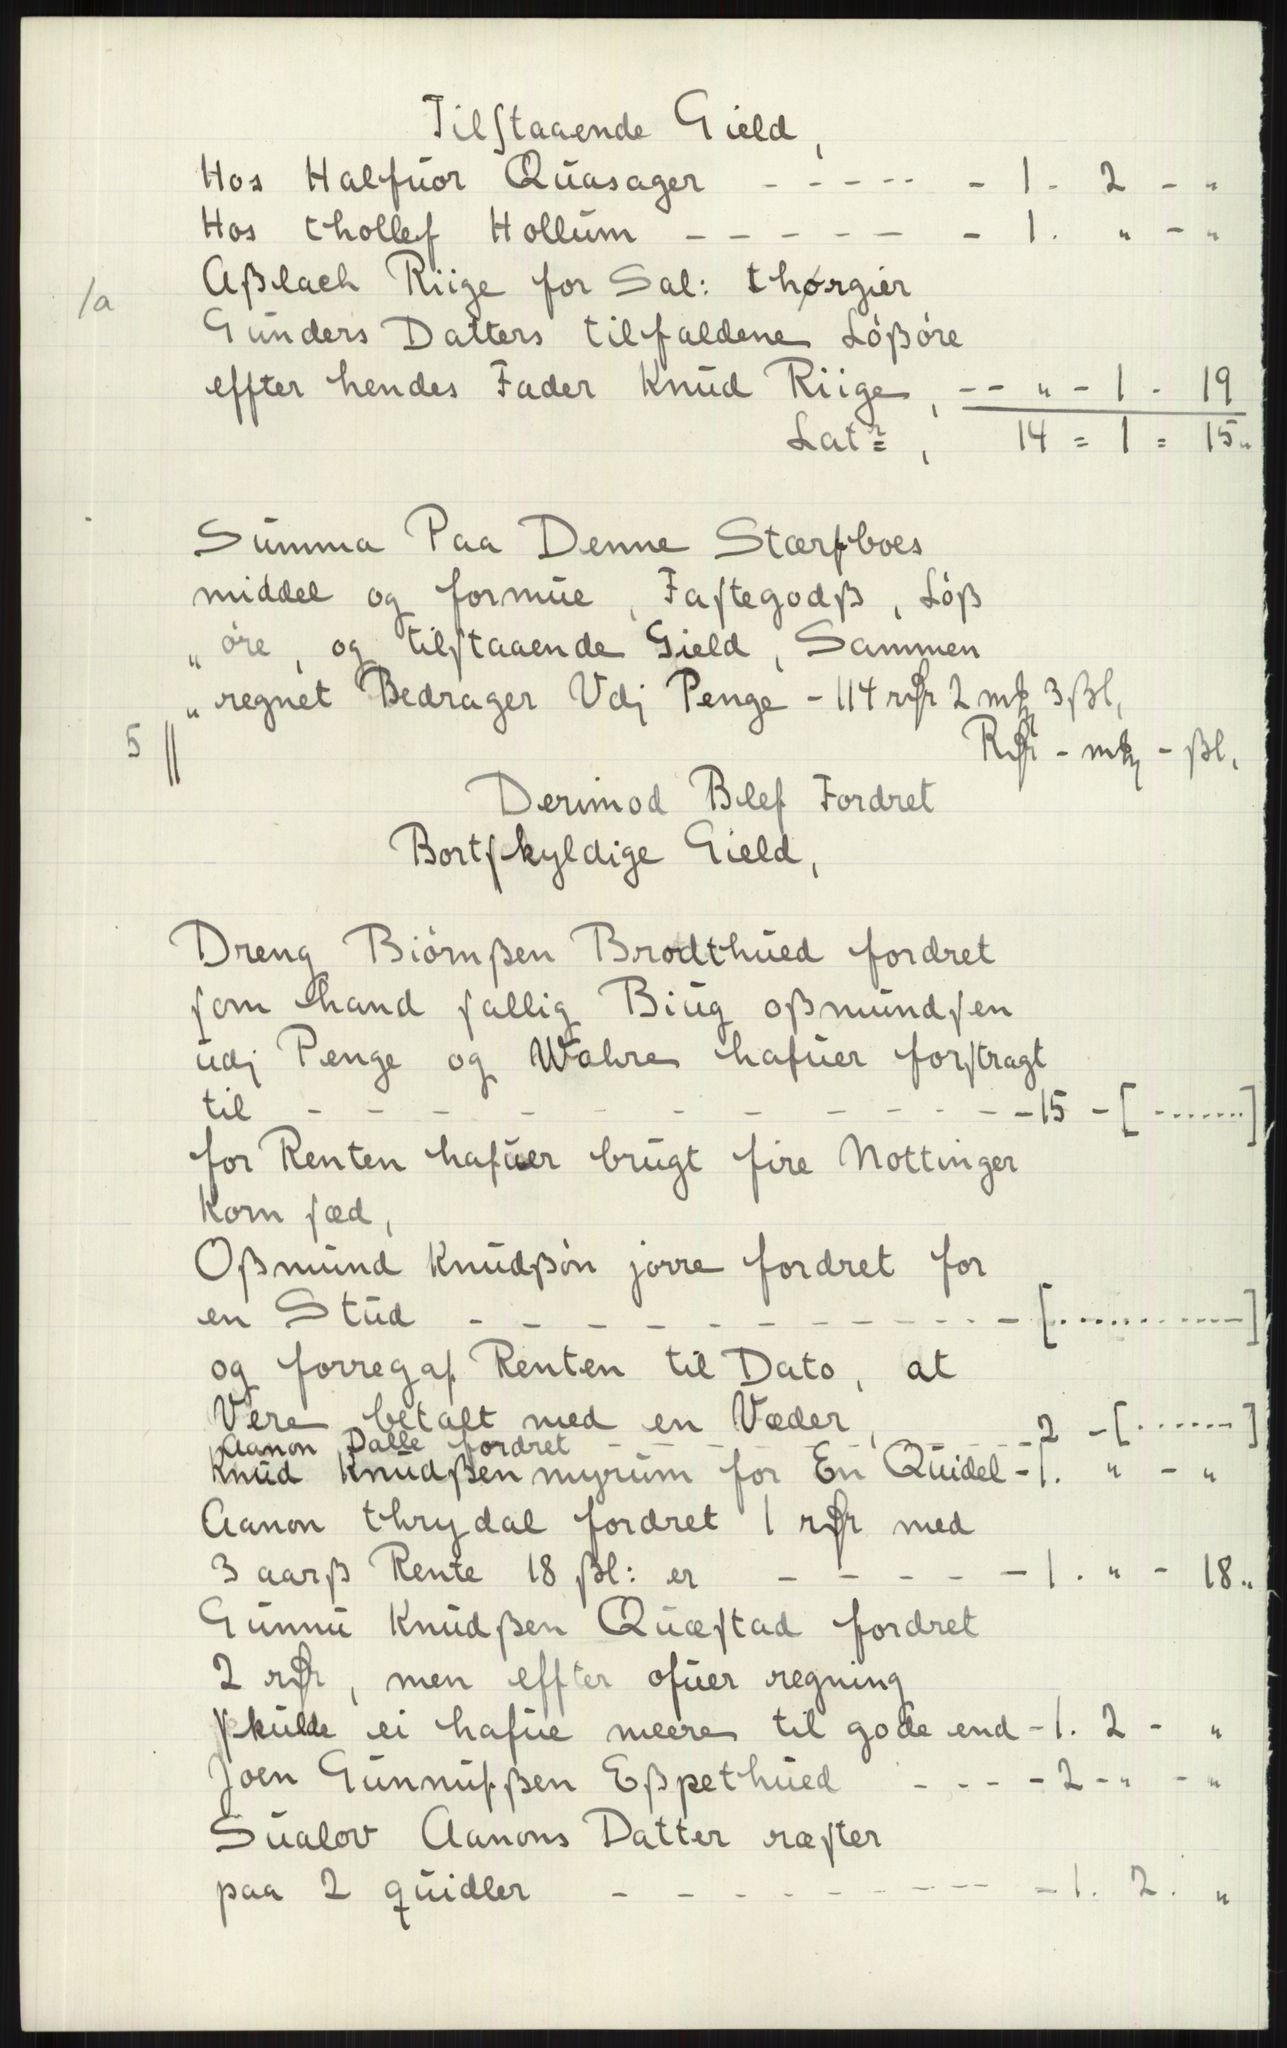 Tilstaaende Gield,
Hos Halfuor Quasager - - - - - - 1 - 2 - "
Hos thollef Hollum - - - - - - 1. " - "
Aßlach Riige for Sal: thorgier
/a
Gunders Datters tilfaldene Lößöre
effter hendes Fader Knud Riige, - - " - 1 - 19
Lat:, 14 = 1 = 15"
Summa Paa Denne Stærfboes
middel og formue, Fastegodß, Löß
" öre, og tilstaaende Gield, Sammen
" regnet Bedrager Vdj Penge - 114 rdr 2 mk 3 ßl,
5 || Rdr - mk - ßl,
Derimod Blef Fordret
Bortskyldige Gield,
Dreng Biörnßen Brodthued fordret
som hand sallig Biug oßmundsen
udj Penge og Wahre hafuer forstragt
til - - - - - - - - - - - 15 - [ ....... ]
for Renten hafuer brugt fire Nottinger
korn sæd,
Oßmund Knudßön jorre fordret for
en Stud - - - - - - - - - - [ ............ ]
og forregaf Renten til Dato, at
Vere betalt med en Væder, - - - 2 - [ ...... ]
Aanon Dalle fordret - - - - - -
Knud Knudßen myrum for En Quidel - 1. " - "
Aanon thrydal fordret 1 rdr med
3 aarß Rente 18 ßl: er - - - - - 1. " - 18"
Gunnu Knudßen Quæstad fordret
2 rdr, men effter ofuer regning
skulde ei hafue meere til gode end - 1. 2 - "
Joen Gunnufßen Eßpethued - - - - 2 - " - "
Sualov Aanons Datter ræster
paa 2 quidler - - - - - - - - - 1. 2. "